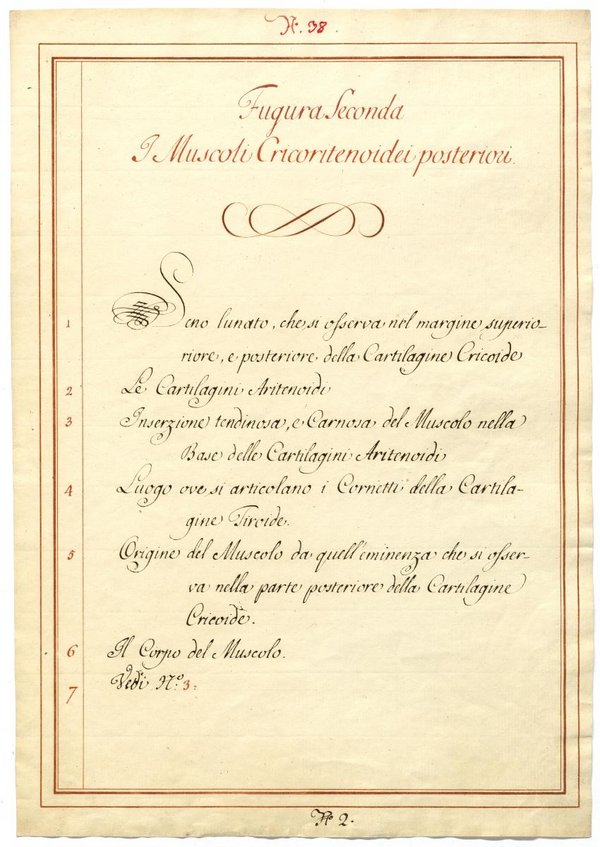 N. 38
Fugura Seconda
I Muscoli Cricoritenoidei posteriori.
1 Seno lunato, che si osserva nel margine superio-
riore, e posteriore della Cartilagine Cricoide
2 Le Cartilagini Aritenoidi
3 Inserzione tendinosa, e Carnosa del Muscolo nella
Base delle Cartilagini Aritenoidi
4 Luogo ove si articolano i Cornetti della Cartila-
gine Tiroide.
5 Origine del Muscolo da quell'eminenza che si osser-
va nella parte posteriore della Cartilagine
Cricoide.
6 Il Corpo del Muscolo.
7 Vedi N.º 3.
N. 2.